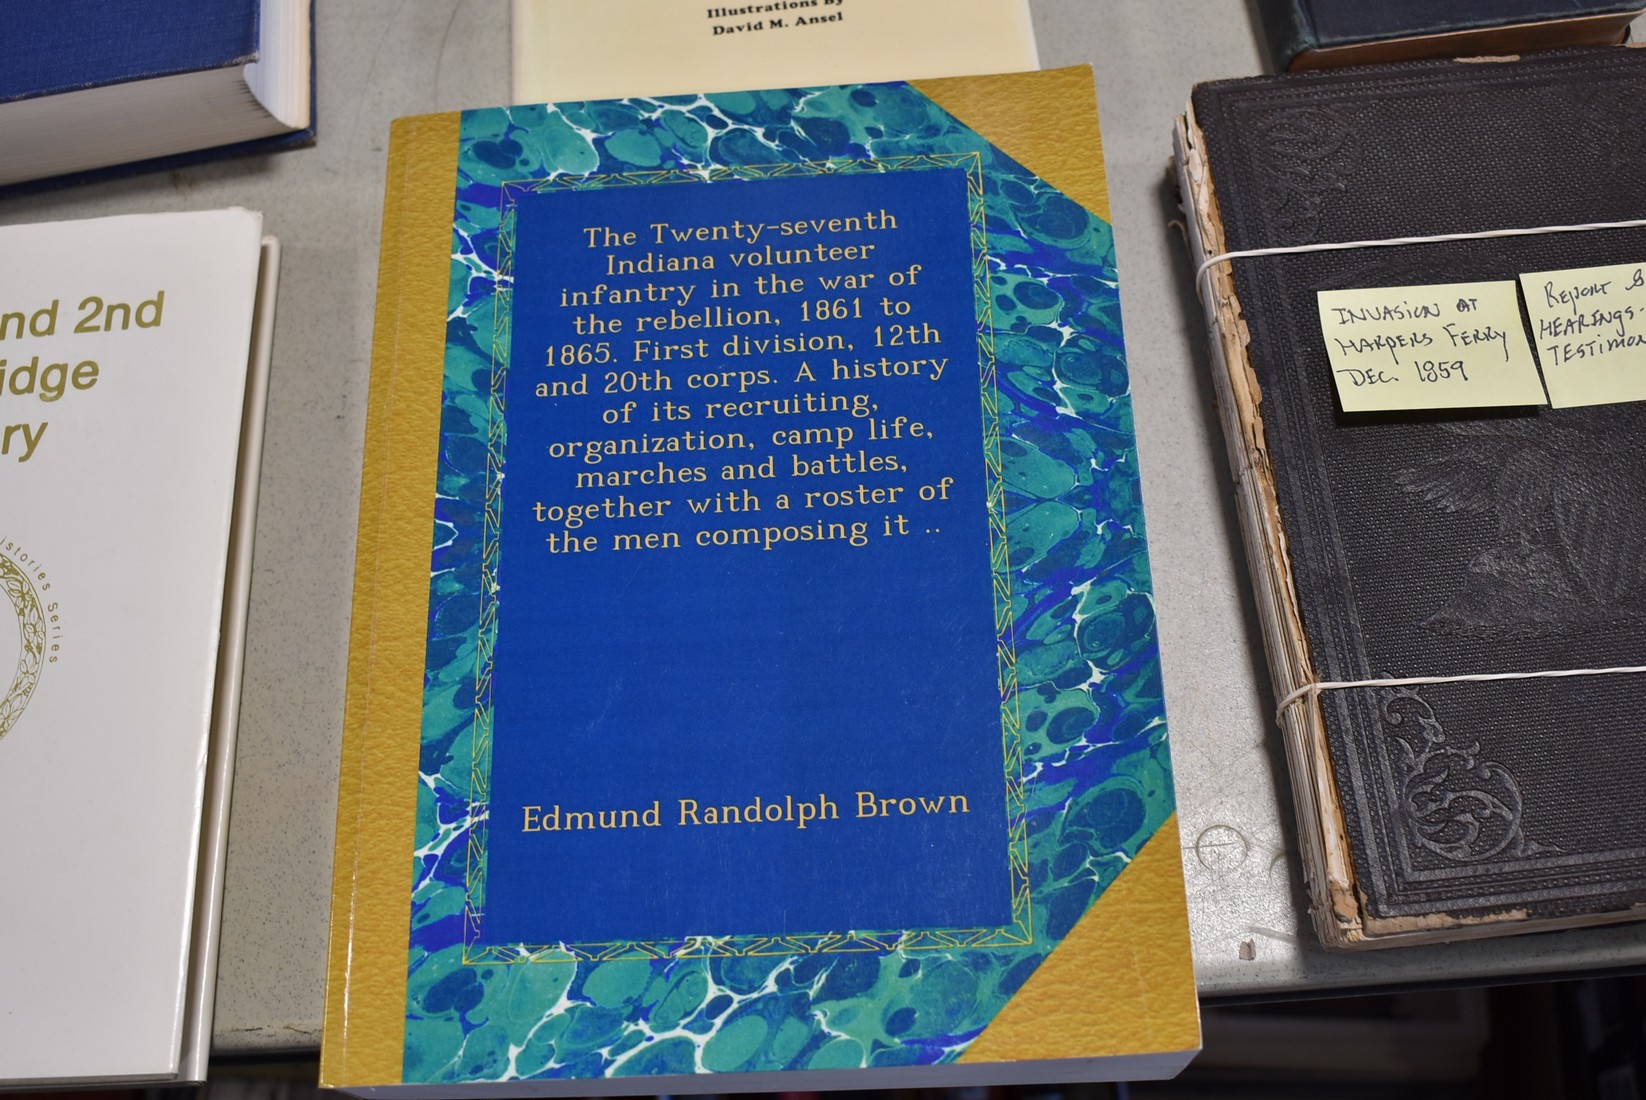 Illustrations By
David M. Ansel
The Twenty-seventh
Indiana volunteer
infantry in the war of
the rebellion, 1861 to
1865. First division, 12th
and 20th corps. A history
of its recruiting,
organization, camp life,
marches and battles,
together with a roster of
the men composing it ..
Edmund Randolph Brown
nd 2nd
idge
ry
istories Series
INVASION AT
HARPERS FERRY
DEC. 1859
REPORT
HEARINGS
TESTIMO